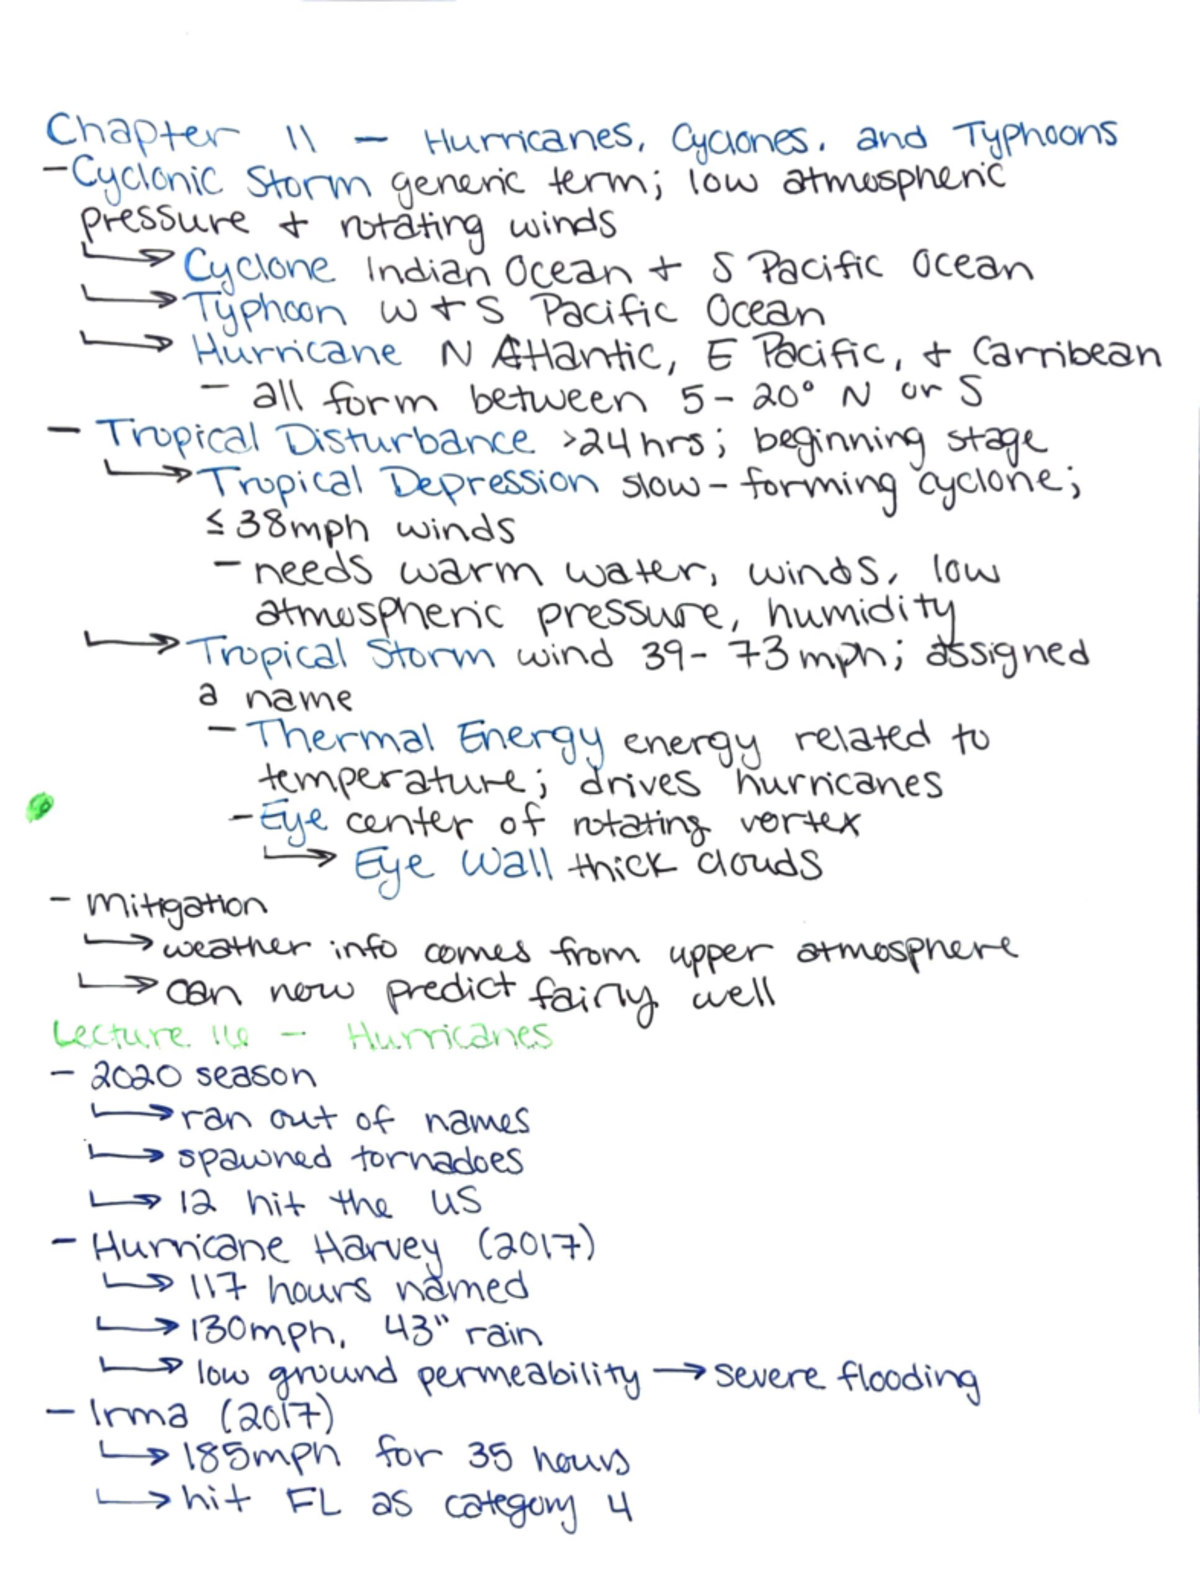 Chapter 11 — Hurricanes, Cyclones, and Typhoons
- Cyclonic Storm generic term; low atmospheric
pressure + rotating winds
↳ Cyclone Indian Ocean + S Pacific Ocean
↳ Typhoon W + S Pacific Ocean
↳ Hurricane N Atlantic, E Pacific, + Carribean
- all form between 5-20° N or S
- Tropical Disturbance >24hrs; beginning stage
↳ Tropical Depression slow-forming cyclone;
≤38mph winds
- needs warm water, winds, low
atmospheric pressure, humidity
↳ Tropical Storm wind 39-73mph; assigned
a name
- Thermal Energy energy related to
temperature; drives hurricanes
- Eye center of rotating vortex
↳ Eye Wall thick clouds
- Mitigation
↳ weather info comes from upper atmosphere
↳ can now predict fairly well
Lecture 16 - Hurricanes
- 2020 season
↳ ran out of names
↳ spawned tornadoes
↳ 12 hit the US
- Hurricane Harvey (2017)
↳ 117 hours named
↳ 130mph, 43" rain
↳ low ground permeability → severe flooding
- Irma (2017)
↳ 185mph for 35 hours
↳ hit FL as category 4